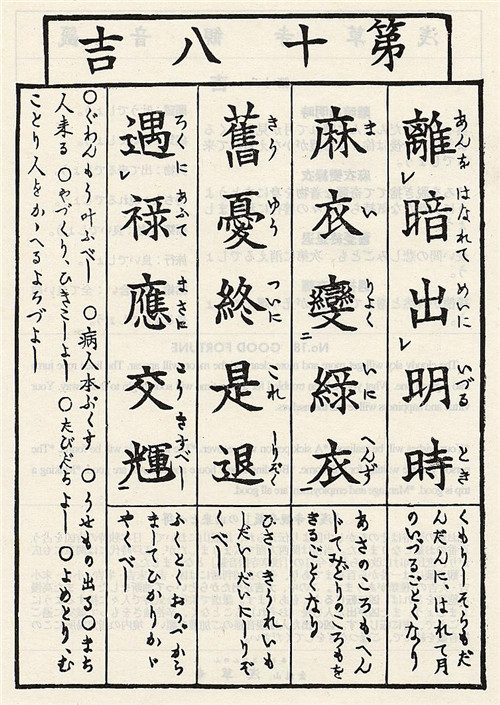 第十八吉
あんを はなれて めいに いづる とき
離レ暗出レ明時
くもりしそらもだ
んだんに、はれて月
のいづるごとくなり
ま い りよく いに へんず
麻衣變二綠衣一
あさのころもゝへん
じてみどりのころもを
きるごとくなり
きう ゆう ついに これ しりぞく
舊憂終是退
ひさしきうれいも
しだいしだいにしりぞ
くべし
ろくに あふて まさに こうきすべし
遇レ禄應二交輝一
ふくとくおのづから
ましてひかりかゞ
やくべし
○ぐわんもう叶ふべし ○病人本ぷくす ○うせもの出る○まち
人来る ○やづくり、ひきこしよし ○たびだちよし ○よめとり、む
ことり人をかゝへるよろづよし